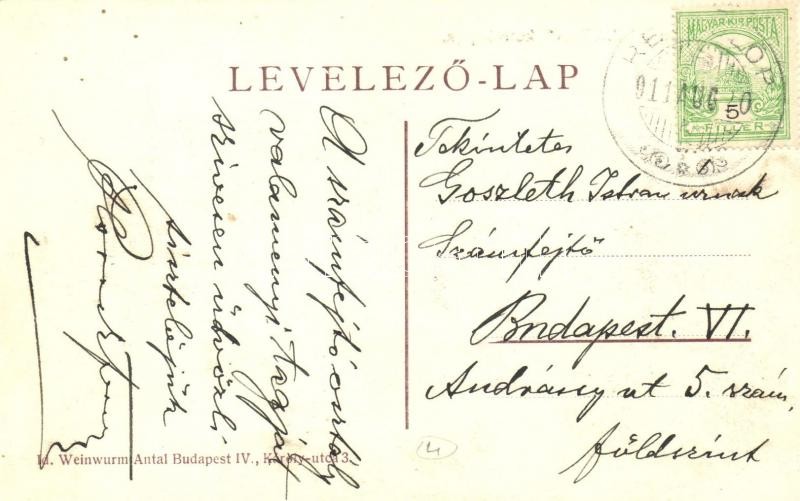 LEVELEZŐ-LAP
MAGYAR·KIR·POSTA
5
FILLÉR
911 AUG
A számfejtő osztály
valamenyi tagját
szívesen üdvözli
tisztelőjük
Tekintetes
Goszleth István urnak
Számfejtő
Budapest. VI.
Andrássy ut 5. szám,
földszint
Id. Weinwurm Antal Budapest IV., Károly-utca 3.
4